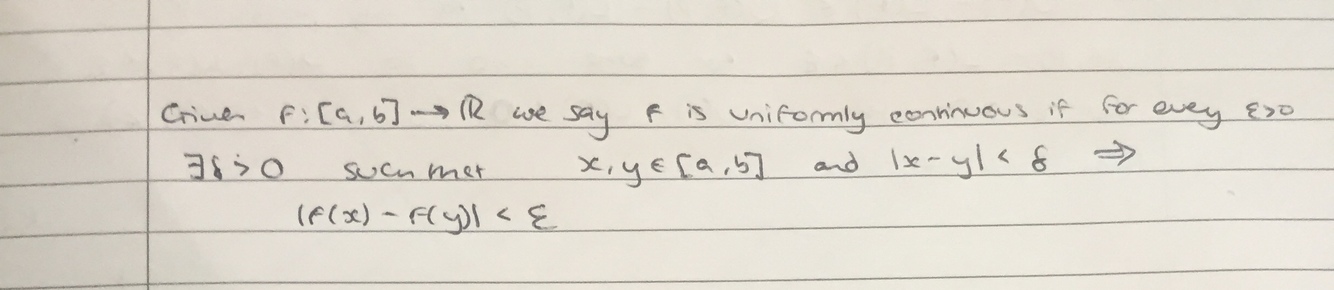 Given f:[a,b] → ℝ we say f is uniformly continuous if for every ε>0
∃δ>0 such that x,y ∈ [a,b] and |x-y| < δ ⇒
|f(x) - f(y)| < ε